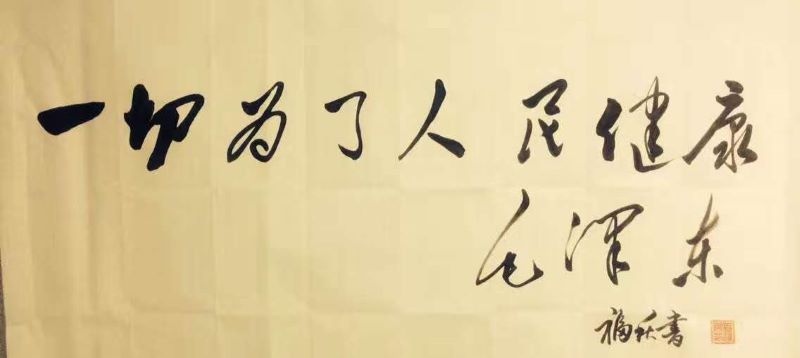 一切为了人民健康
毛泽东
福秋书